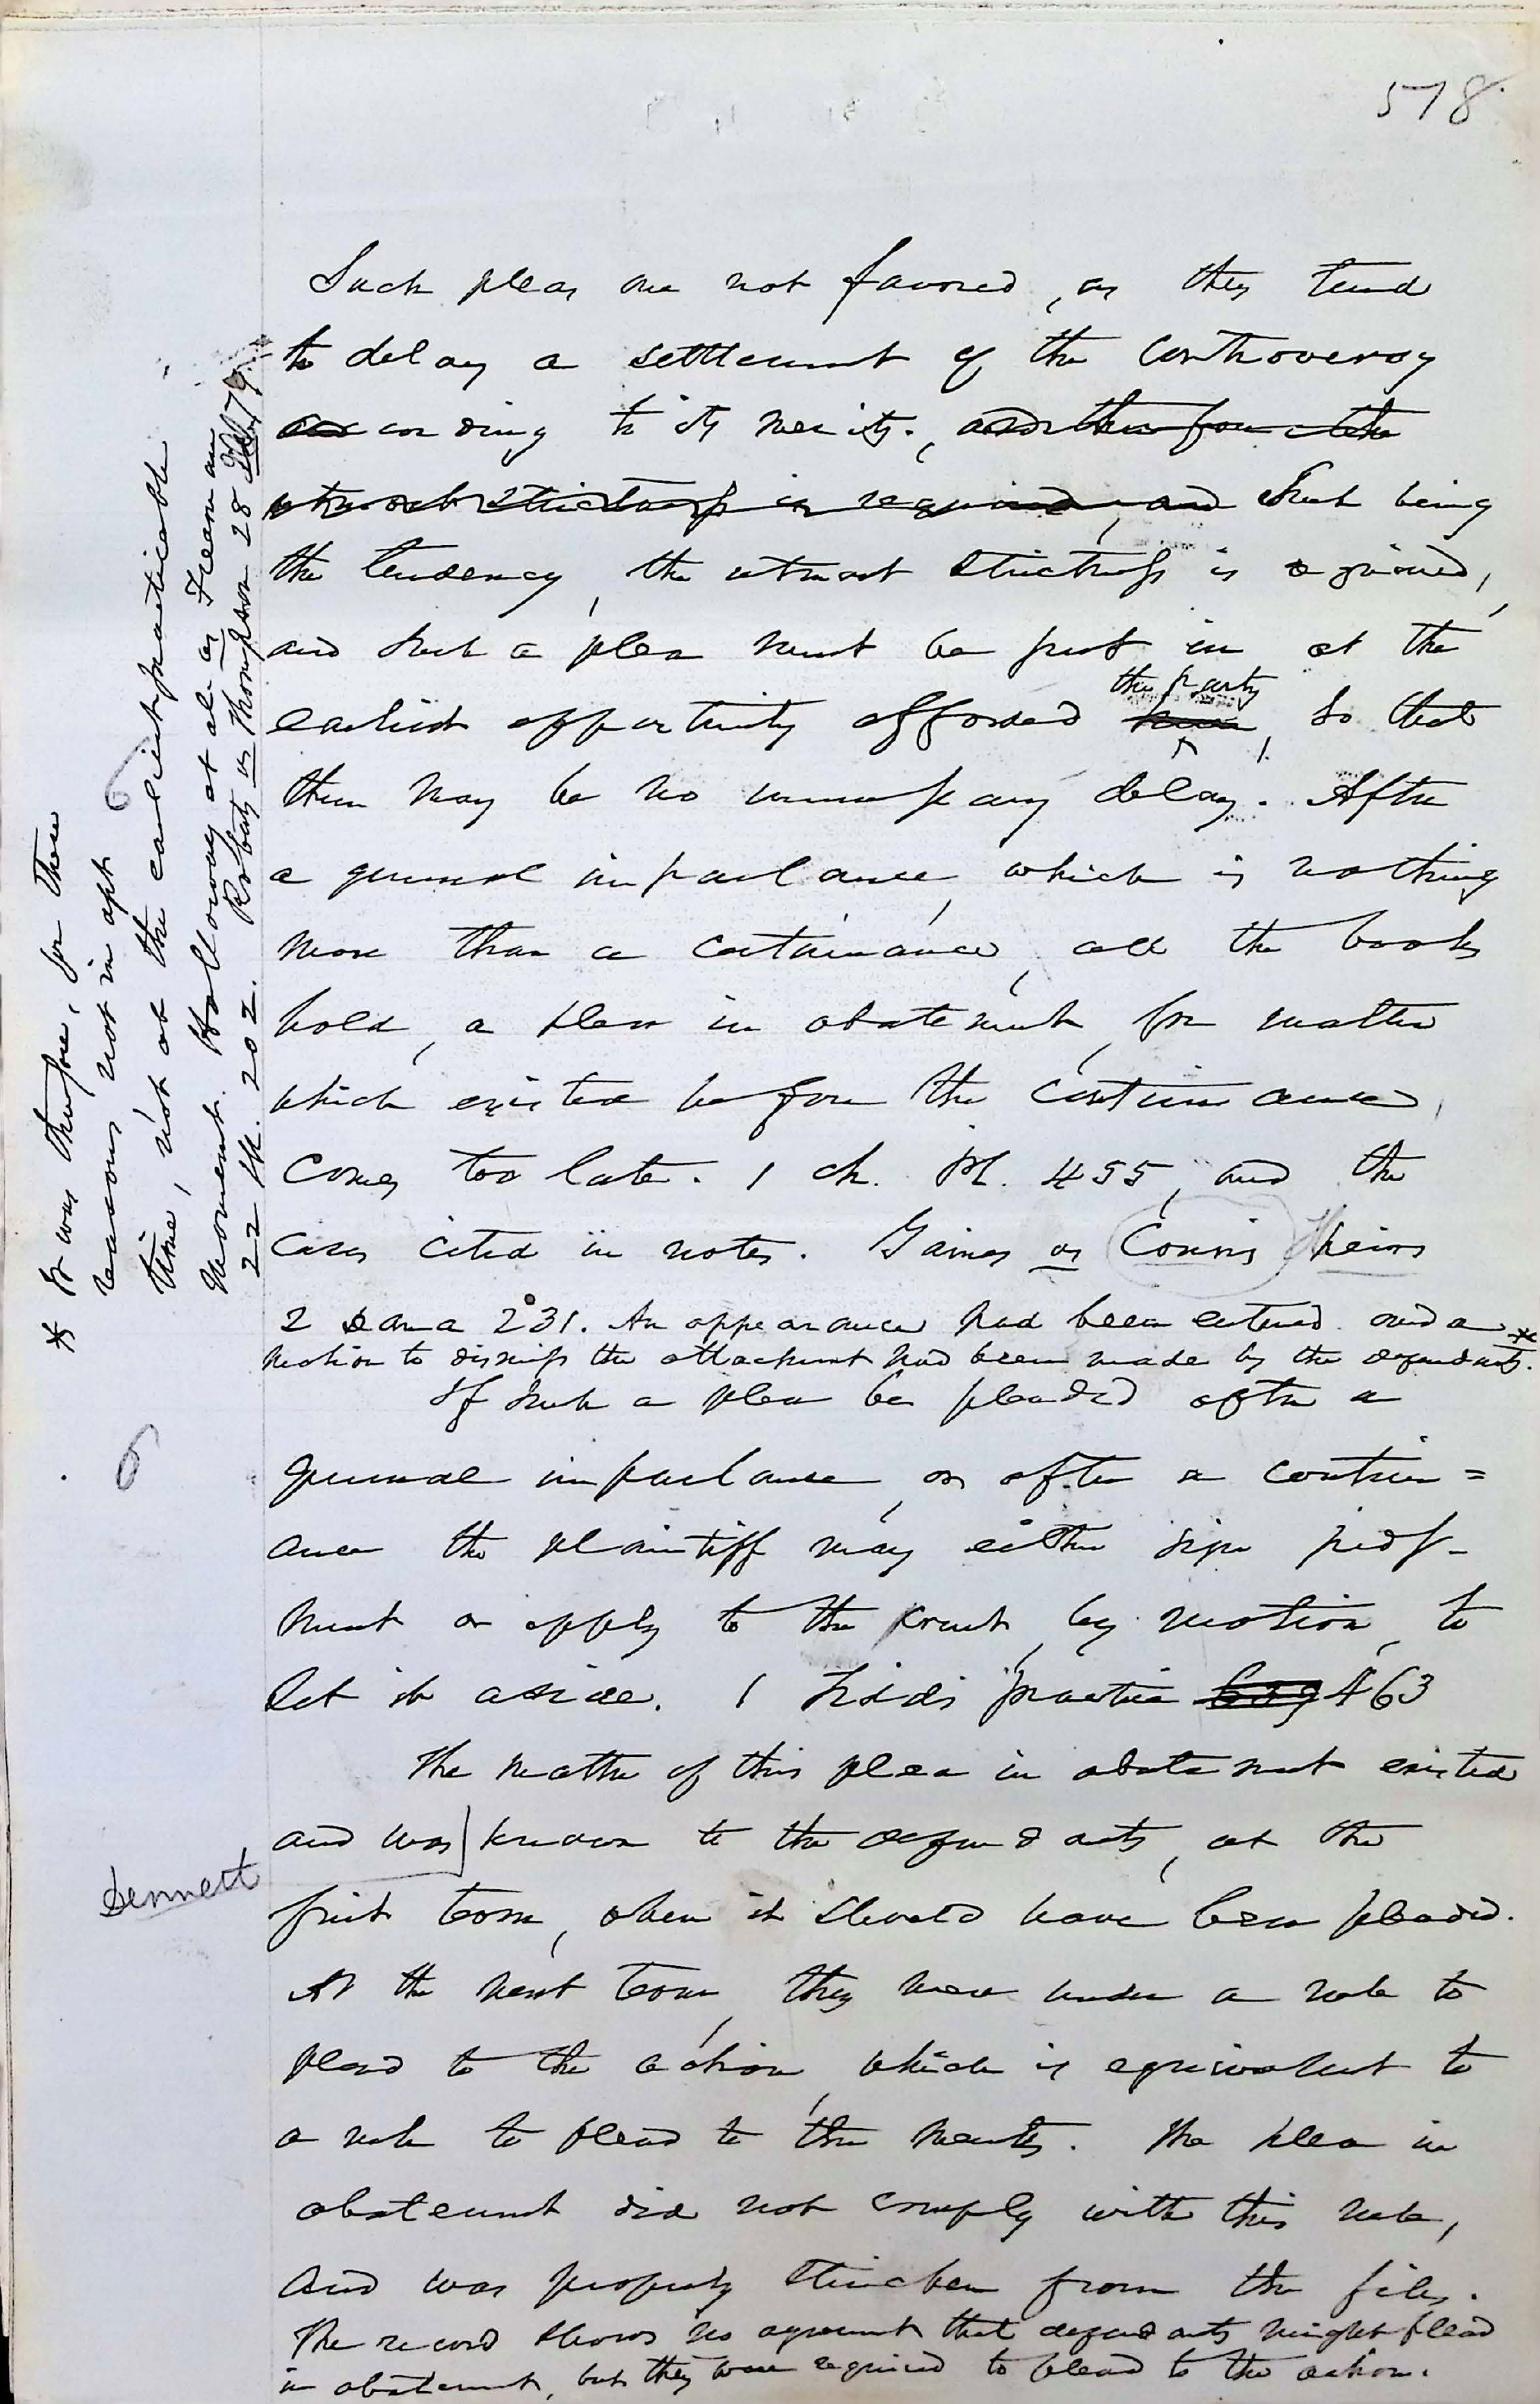 578
Such pleas are not favored, as they tend
to delay a settlement of the controversy
according to its merits. and therefore the
utmost strictness is required, and Such being
the tendency, the utmost strictness is required,
and such a plea must be put in at the
the party
earliest opportunity afforded him, so that
there may be no unnecessary delay. After
a general imparlance, which is nothing
more than a continuance, all the books
hold, a plea in abatement, for matter
which existed before the continuance,
comes too late. 1 Ch. Pl. 455, and the
cases cited in notes. Gaines vs Conn's heirs
2 Dana 231. An appearance had been entered and a *
motion to dismiss the attachment had been made by the defendants.
If such a plea be pleaded after a
general imparlance, or after a continu=
ance the plaintiff may either sign judg-
ment or apply to the court, by motion, to
set it aside. 1 Tidd's practice 463
The matter of this plea in abatement existed
and was known to the defendants, at the
first term, when it should have been pleaded.
At the next term, they were under a rule to
plead to the action, which is equivalent to
a rule to plead to the merits. The plea in
abatement did not comply with this rule,
and was properly stricken from the files.
The record shows no agreement that defendants might plead
in abatement, but they were required to plead to the action.
* It was therefore, for these
reasons not in apt
time, not at the earliest practicable
moment. Holloway et al vs Freeman
22 Ill. 202. Roberts vs Thompson 28 Ill 79.
6
6
Sennett